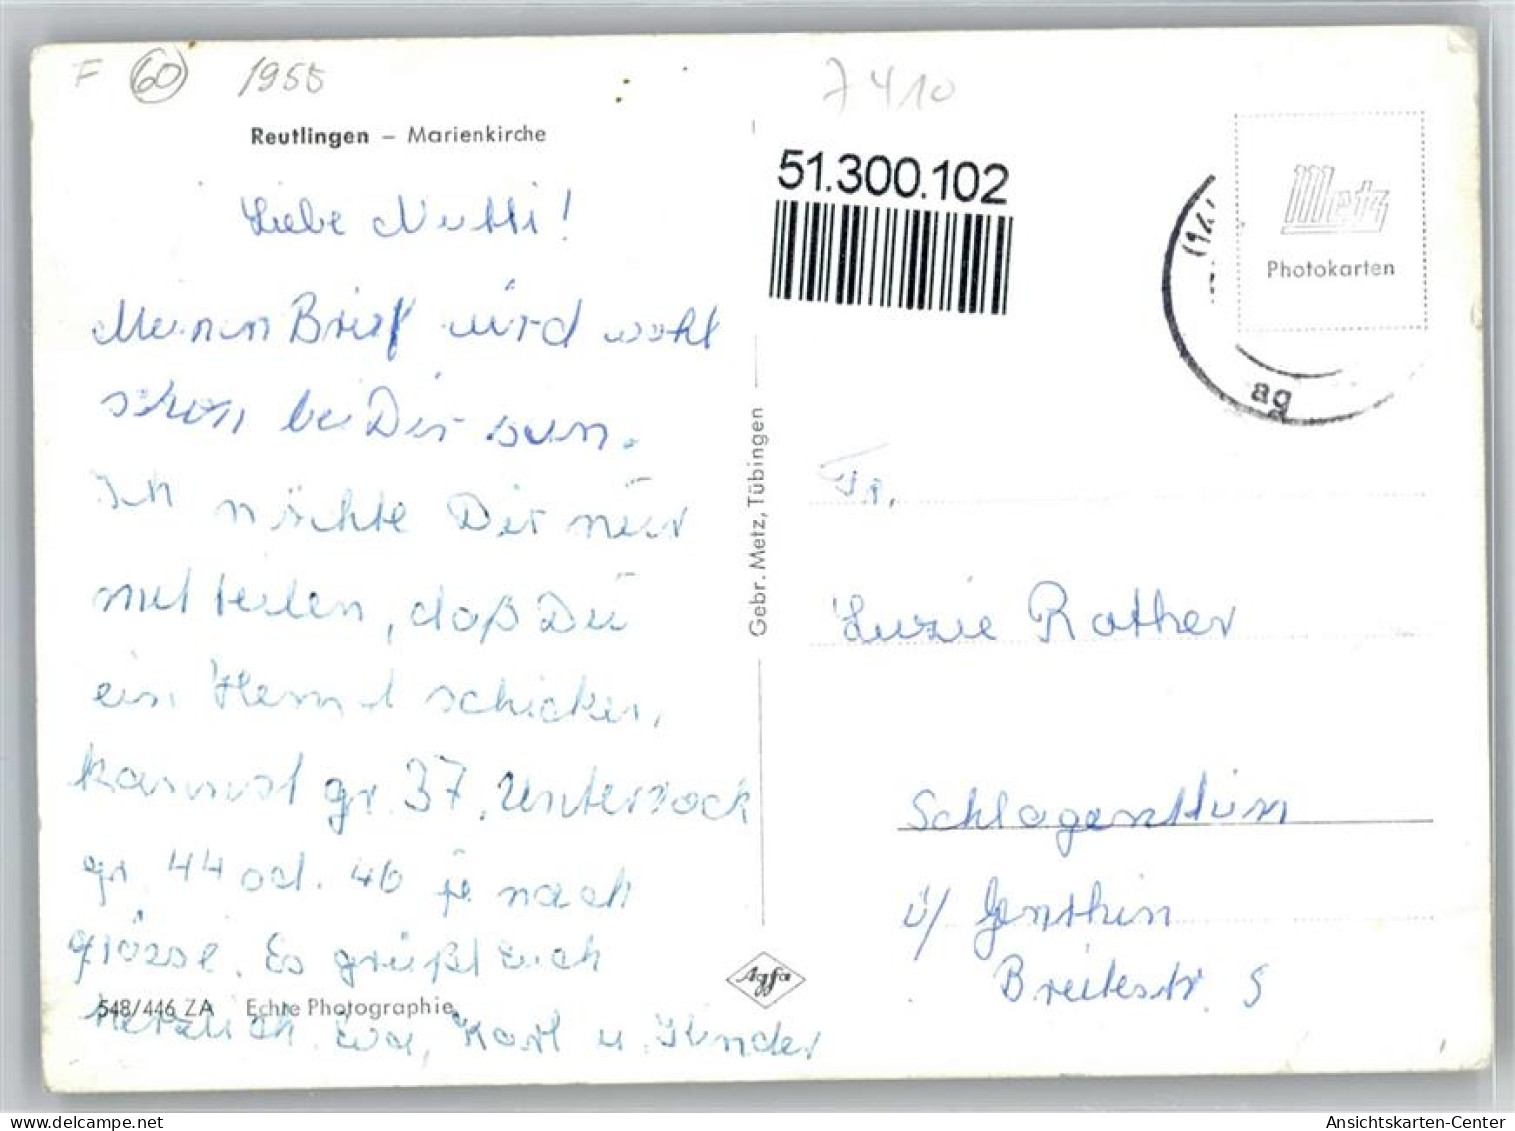 F 60 1955
7410
Reutlingen – Marienkirche
51.300.102
Metz
Photokarten
Liebe Mutti!
Meinen Brief wird wohl
schon bei Dir sein.
Ich möchte Dir nur
mitteilen, daß Du
ein Hemd schicken,
kannst gr. 37, Unterrock
gr. 44 od. 46 je nach
grösse. Es grüßt Euch
herzlich Eva, Karl u. Kinder
548/446 ZA Echte Photographie
Gebr. Metz, Tübingen
Agfa
ag
Fr.
Luzie Rother
Schlagenthin
ü/ Genthin
Breitestr. 5
Ansichtskarten-Center
delcampe.net